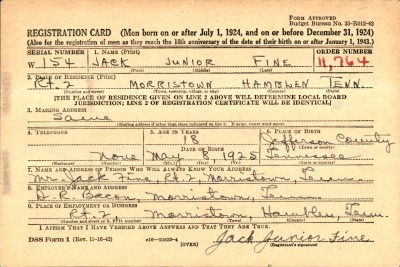 Form Approved
Budget Bureau No. 33-R012-42
REGISTRATION CARD (Men born on or after July 1, 1924, and on or before December 31, 1924)
(Also for the registration of men as they reach the 18th anniversary of the date of their birth on or after January 1, 1943.)
SERIAL NUMBER 1. NAME (Print) ORDER NUMBER
W 154 JACK JUNIOR FINE 11,764
(First) (Middle) (Last)
2. PLACE OF RESIDENCE (Print)
Rt. 2 MORRISTOWN HAMBLEN TENN.
(Number and street) (Town, township, village, or city) (County) (State)
[THE PLACE OF RESIDENCE GIVEN ON LINE 2 ABOVE WILL DETERMINE LOCAL BOARD
JURISDICTION; LINE 2 OF REGISTRATION CERTIFICATE WILL BE IDENTICAL]
3. MAILING ADDRESS
Same
4. TELEPHONE 5. AGE IN YEARS 6. PLACE OF BIRTH
18 Jefferson County
DATE OF BIRTH
None May 8, 1925 Tennessee
7. NAME AND ADDRESS OF PERSON WHO WILL ALWAYS KNOW YOUR ADDRESS
Mr. Jack Fine, Rt. 2, Morristown, Tenn.
8. EMPLOYER'S NAME AND ADDRESS
Bacon, Morristown, Tenn.
9. PLACE OF EMPLOYMENT OR BUSINESS
Rt. 2 Morristown, Hamblen, Tenn.
(Number and street or R. F. D. number) (Town) (County) (State)
I AFFIRM THAT I HAVE VERIFIED ABOVE ANSWERS AND THAT THEY ARE TRUE.
DSS Form 1 (Rev. 11-16-42) (OVER) Jack Junior Fine
(Registrant's signature)